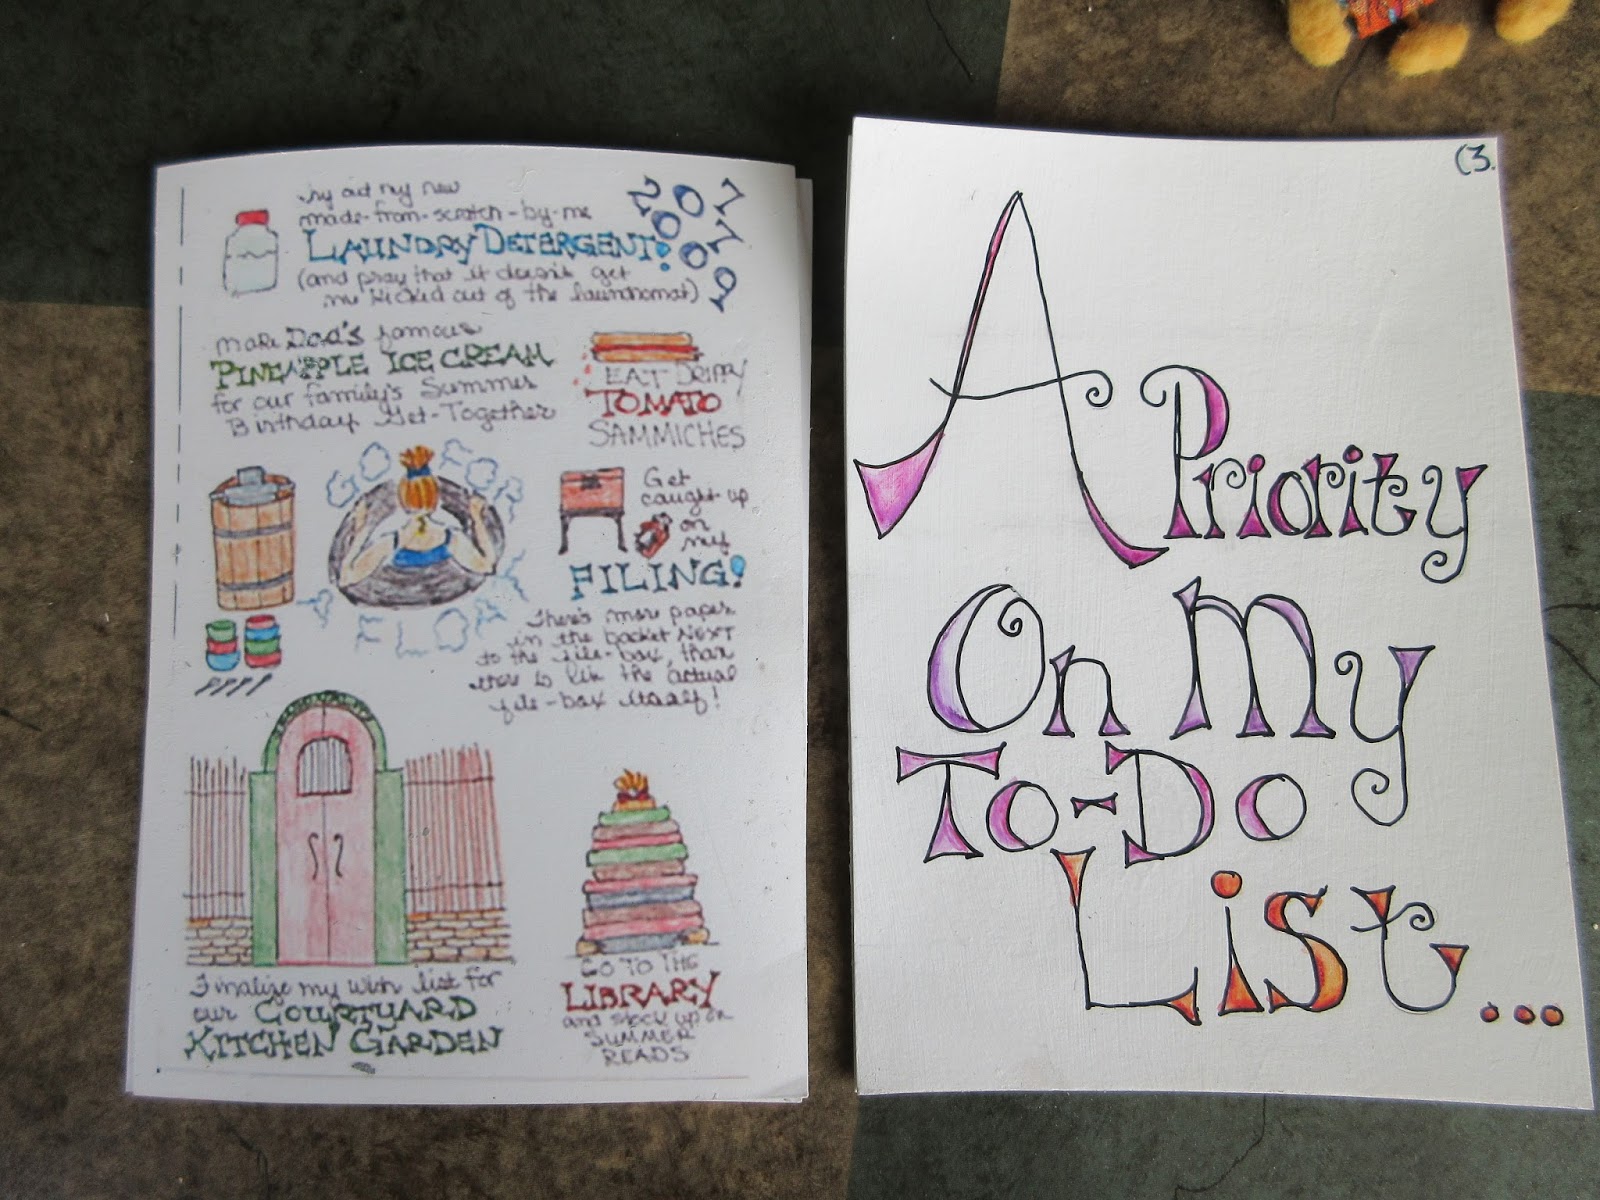 try out my new
made-from-scratch-by-me
LAUNDRY DETERGENT!
(and pray that it doesn't get
me kicked out of the laundromat)
make Dad's famous
PINEAPPLE ICE CREAM
for our family's Summer
Birthday Get-Together
EAT DRIPPY
TOMATO
SAMMICHES
GO FOR
A
FLOAT
Get
caught up
on
my
FILING!
There's more paper
in the basket NEXT
to the file-box, than
there is in the actual
file-box itself!
Finalize my wish list for
our COURTYARD
KITCHEN GARDEN
GO TO THE
LIBRARY
and stock up on
SUMMER
READS
(3.
A Priority
On My
To-Do
List...